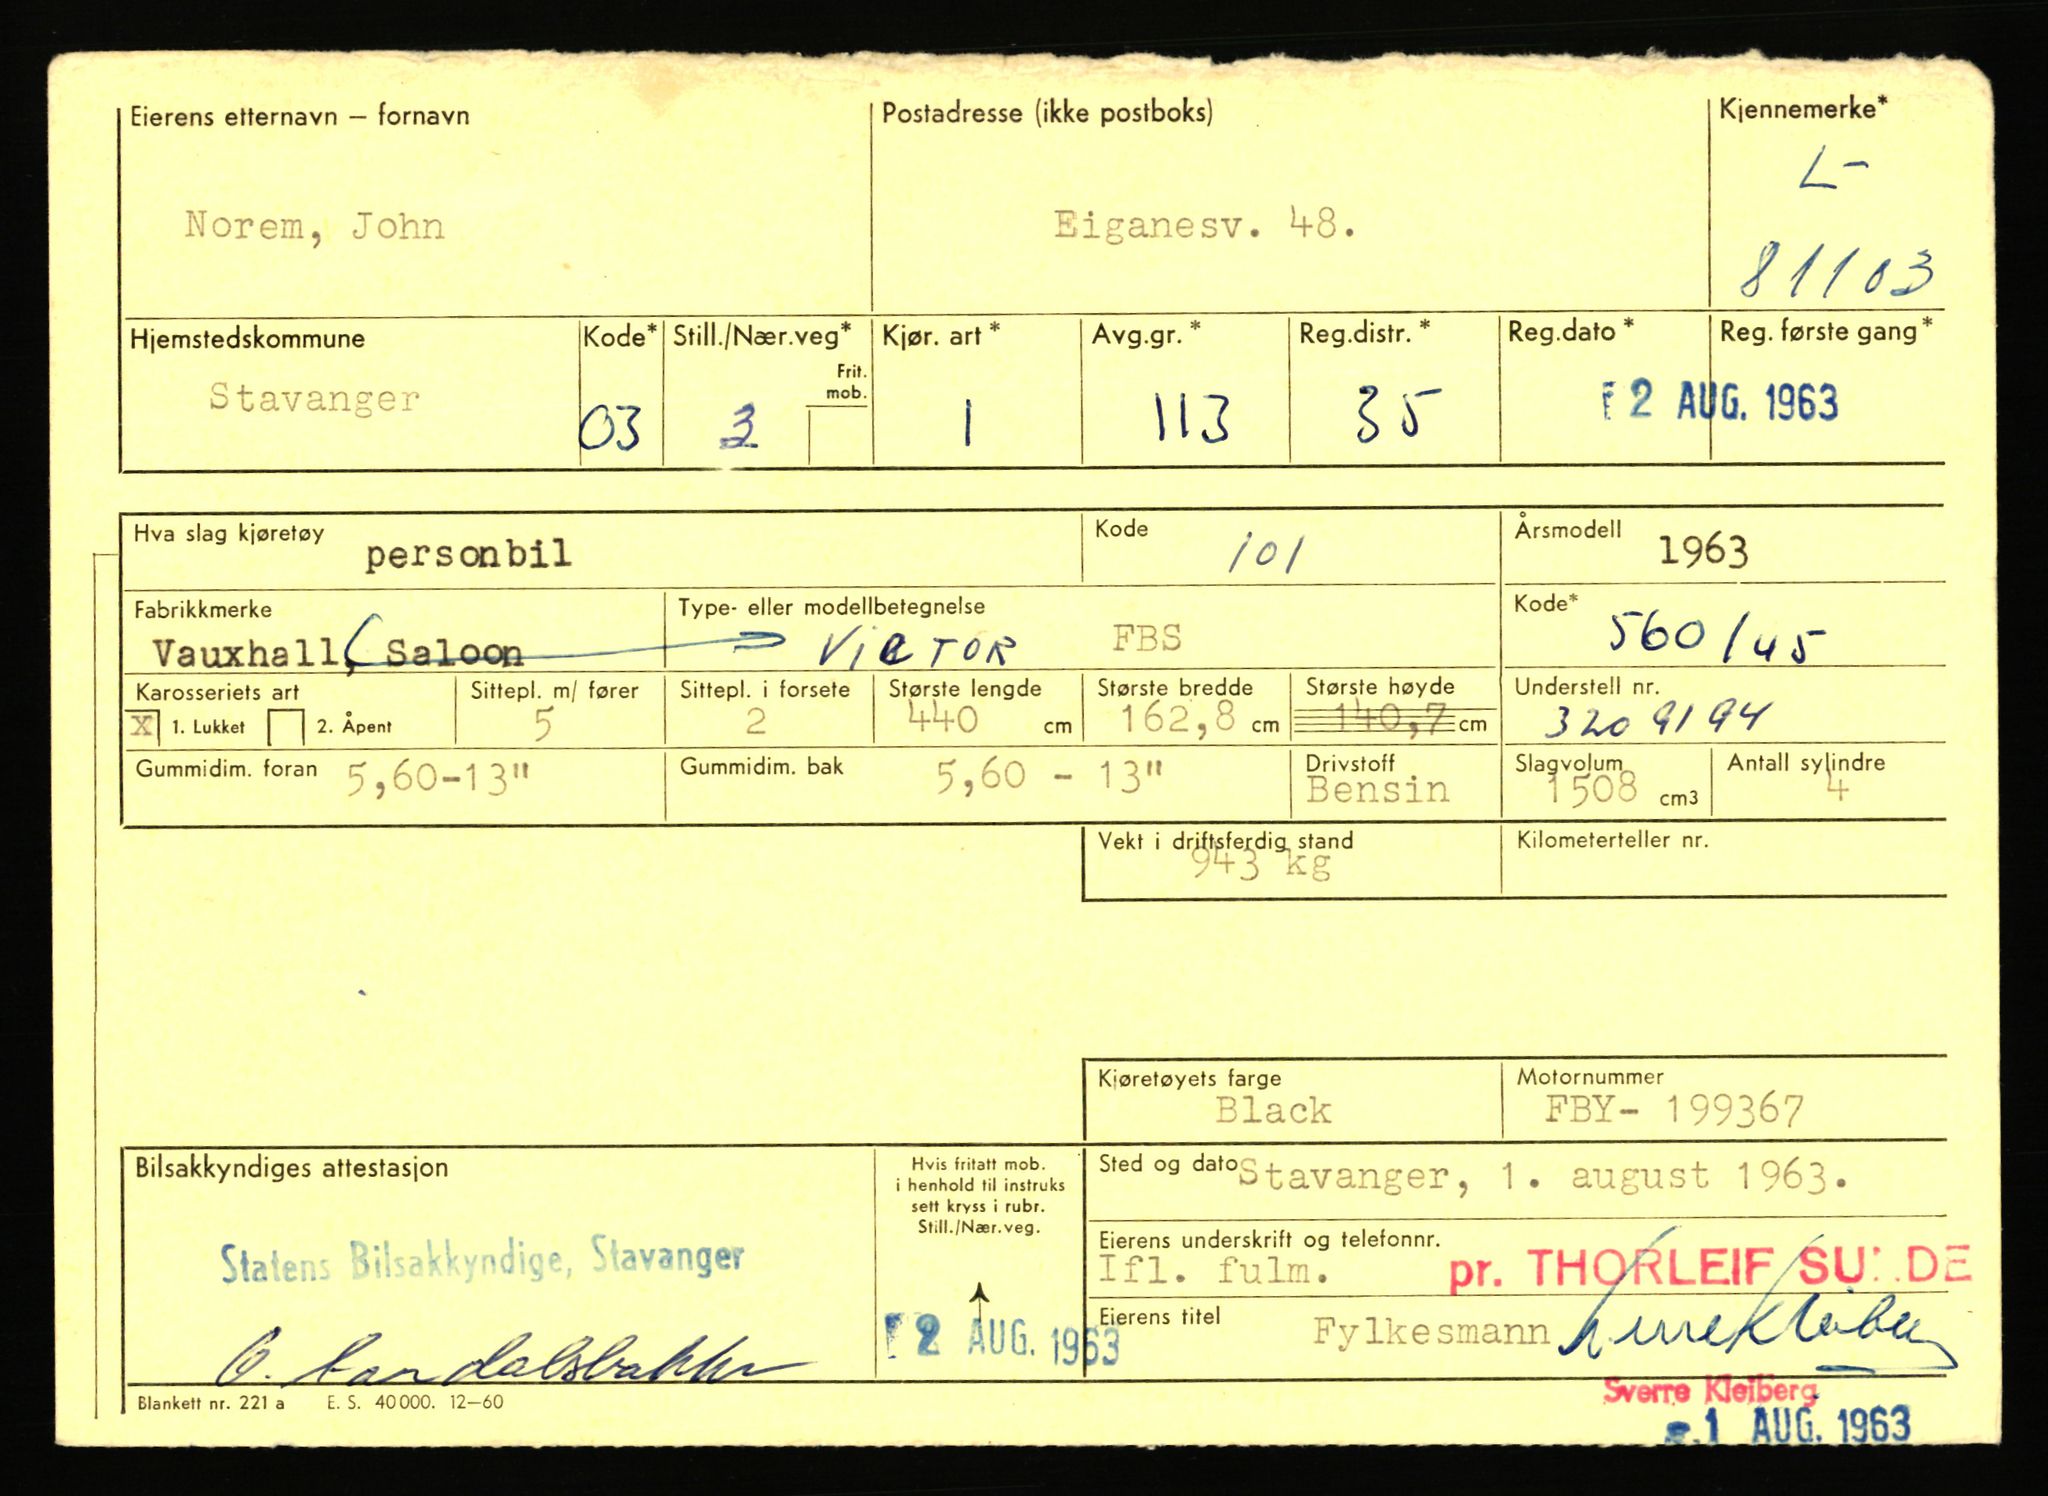 Eierens etternavn – fornavn Postadresse (ikke postboks) Kjennemerke*
L-
Norem, John Eiganesv. 48.
81103
Hjemstedskommune Kode* Still./Nær.veg* Kjør. art* Avg.gr.* Reg.distr.* Reg.dato* Reg. første gang*
Frit. mob.
Stavanger 03 3 1 113 35 2 AUG. 1963
Hva slag kjøretøy personbil Kode 101 Årsmodell 1963
Fabrikkmerke Type- eller modellbetegnelse Kode*
Vauxhall, Saloon VICTOR FBS 560/45
Karosseriets art Sittepl. m/ fører Sittepl. i forsete Største lengde Største bredde Største høyde Understell nr.
X 1. Lukket 2. Åpent 5 2 440 cm 162,8 cm 140,7 cm 3209194
Gummidim. foran 5,60-13" Gummidim. bak 5,60 - 13" Drivstoff Bensin Slagvolum 1508 cm3 Antall sylindre 4
Vekt i driftsferdig stand Kilometerteller nr.
943 kg
Kjøretøyets farge Motornummer
Black FBY- 199367
Bilsakkyndiges attestasjon
Hvis fritatt mob.
i henhold til instruks
sett kryss i rubr.
Still./Nær.veg.
Sted og dato Stavanger, 1. august 1963.
Statens Bilsakkyndige, Stavanger
Eierens underskrift og telefonnr.
Ifl. fulm. pr. THORLEIF SU DE
2 AUG. 1963
Eierens titel Fylkesmann Sverre Kleiberg
Sverre Kleiberg
1 AUG. 1963
Blankett nr. 221 a E. S. 40000. 12–60